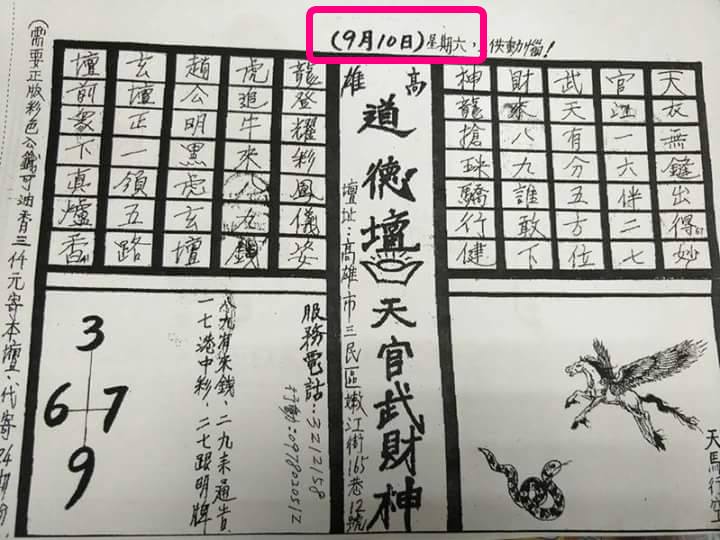 (9月10日)星期六,
天衣無出得妙
官江一六伴二七
武天有分五方位
財來八九誰敢下
神龍搶珠驕行健
高雄
道德壇天官武財神
壇址:高雄市三民區嫩江街165巷12號
龍登耀彩鳳儀姿
虎追牛來八九錢
趙公明黑虎玄壇
玄壇正一領五路
壇前眾下真爐香
天馬行空
服務電話:3212158
行動:0978220512
八九有來錢、二九未通告
一七港中彩、二七跟明牌
3
6 7
9
(需要正版彩色公籤可油香三仟元寄本壇,代寄24期份